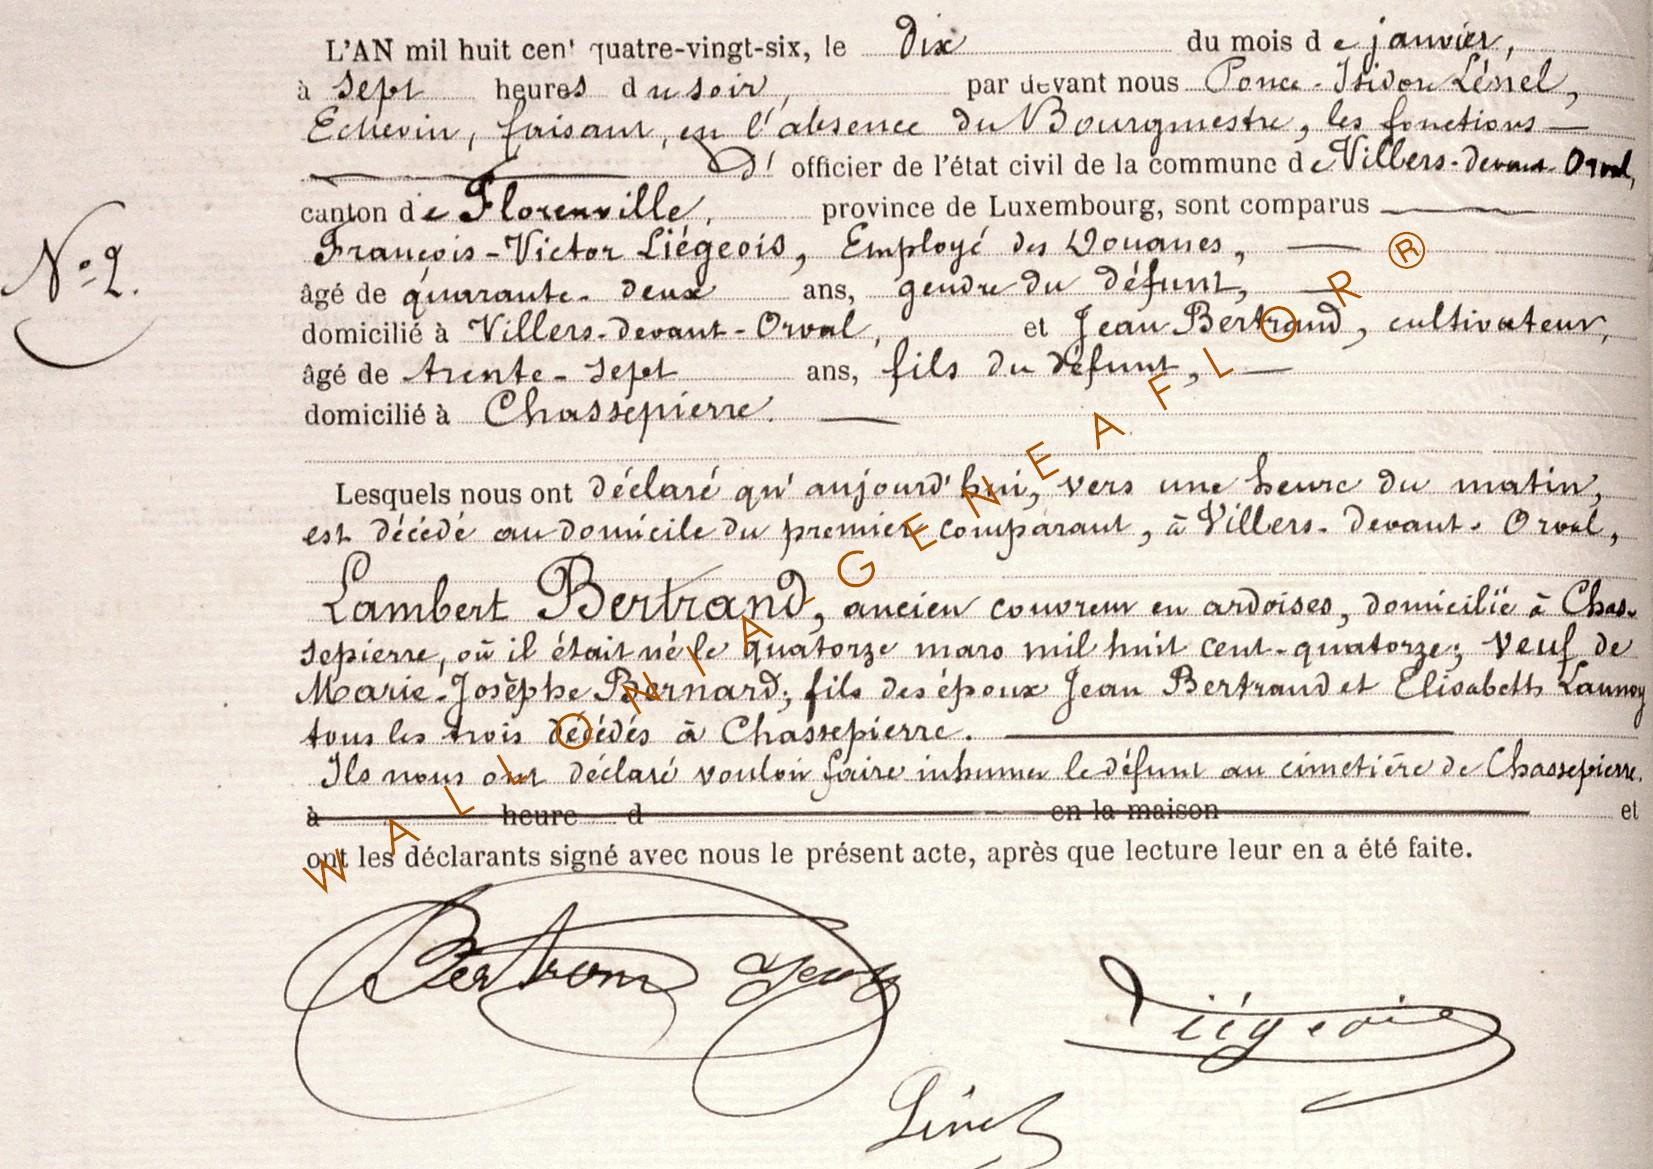 L'AN mil huit cen' quatre-vingt-six, le dix du mois de janvier,
à sept heures du soir, par devant nous Ponce-Isidore Lénel,
Echevin, faisant, en l'absence du Bourgmestre, les fonctions —
d' officier de l'état civil de la commune de Villers-devant-Orval,
canton de Florenville, province de Luxembourg, sont comparus
François-Victor Liégeois, Employé des Douanes,
N° 2.
âgé de quarante-deux ans, gendre du défunt,
domicilié à Villers-devant-Orval, et Jean Bertrand, cultivateur,
âgé de trente-sept ans, fils du défunt,
domicilié à Chassepierre.
Lesquels nous ont déclaré qu'aujourd'hui, vers une heure du matin,
est décédé au domicile du premier comparant, à Villers-devant-Orval,
Lambert Bertrand, ancien couvreur en ardoises, domicilié à Chas-
sepierre, où il était né le quatorze mars mil huit cent-quatorze; veuf de
Marie-Josèphe Bernard; fils des époux Jean Bertrand et Elisabeth Launoy
tous les trois décédés à Chassepierre.
Ils nous ont déclaré vouloir faire inhumer le défunt au cimetière de Chassepierre.
à heure d en la maison et
ont les déclarants signé avec nous le présent acte, après que lecture leur en a été faite.
Bertrand Jean
Liégeois
Lénel
WALLONIA GENEAFLOR ®